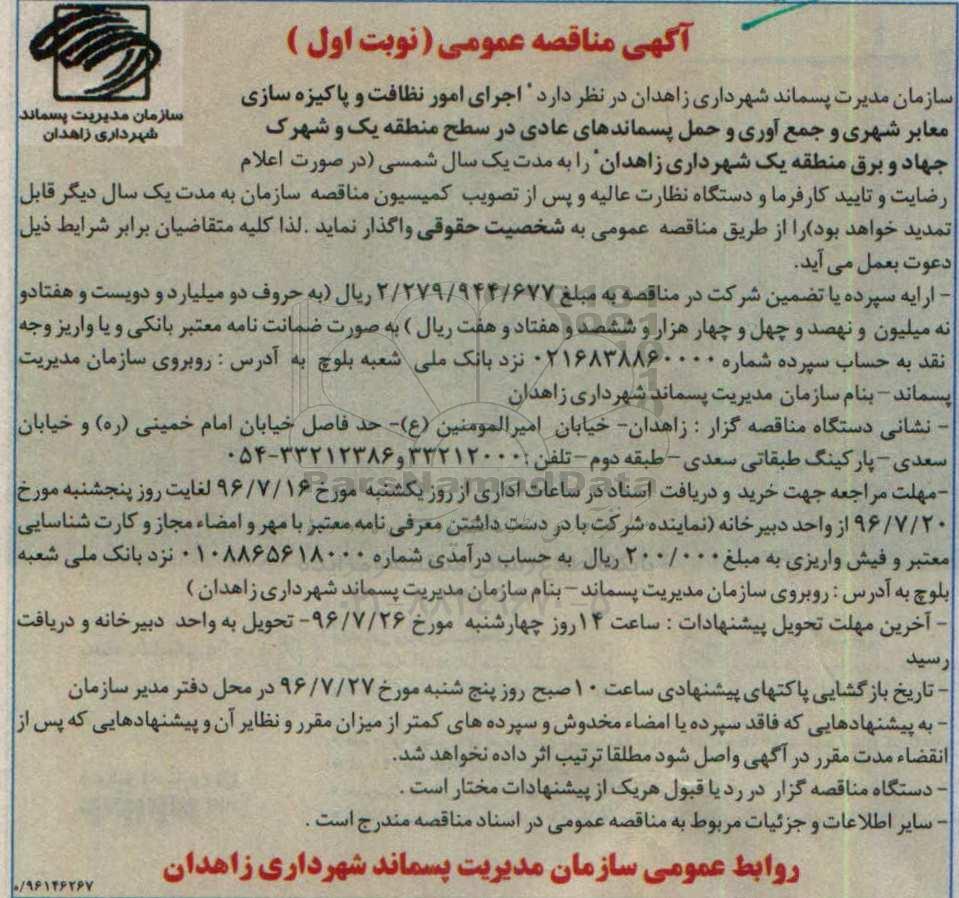 آگهی مناقصه عمومی (نوبت اول )
سازمان مدیریت پسماند
شهرداری زاهدان
سازمان مدیرت پسماند شهرداری زاهدان در نظر دارد " اجرای امور نظافت و پاکیزه سازی
معابر شهری و جمع آوری و حمل پسماندهای عادی در سطح منطقه یک و شهرک
جهاد و برق منطقه یک شهرداری زاهدان" را به مدت یک سال شمسی (در صورت اعلام
رضایت و تایید کارفرما و دستگاه نظارت عالیه و پس از تصویب کمیسیون مناقصه سازمان به مدت یک سال دیگر قابل
تمدید خواهد بود)را از طریق مناقصه عمومی به شخصیت حقوقی واگذار نماید .لذا کلیه متقاضیان برابر شرایط ذیل
دعوت بعمل می آید.
- ارایه سپرده یا تضمین شرکت در مناقصه به مبلغ ۲/۲۷۹/۹۴۴/۶۷۷ ریال (به حروف دو میلیارد و دویست و هفتادو
نه میلیون و نهصد و چهل و چهار هزار و ششصد و هفتاد و هفت ریال ) به صورت ضمانت نامه معتبر بانکی و یا واریز وجه
نقد به حساب سپرده شماره ۰۲۱۶۸۳۸۸۶۰۰۰۰ نزد بانک ملی شعبه بلوچ به آدرس : روبروی سازمان مدیریت
پسماند – بنام سازمان مدیریت پسماند شهرداری زاهدان
- نشانی دستگاه مناقصه گزار : زاهدان- خیابان امیرالمومنین (ع)- حد فاصل خیابان امام خمینی (ره) و خیابان
سعدی – پارکینگ طبقاتی سعدی – طبقه دوم – تلفن : ۳۳۲۱۲۰۰۰ و ۳۳۲۱۲۳۸۶-۰۵۴
ParsNamadData
-مهلت مراجعه جهت خرید و دریافت اسناد در ساعات اداری از روز یکشنبه مورخ ۹۶/۷/۱۶ لغایت روز پنجشنبه مورخ
۹۶/۷/۲۰ از واحد دبیرخانه (نماینده شرکت با در دست داشتن معرفی نامه معتبر با مهر و امضاء مجاز و کارت شناسایی
معتبر و فیش واریزی به مبلغ ۲۰۰/۰۰۰ ریال به حساب درآمدی شماره ۰۱۰۸۸۶۵۶۱۸۰۰۰ نزد بانک ملی شعبه
بلوچ به آدرس : روبروی سازمان مدیریت پسماند – بنام سازمان مدیریت پسماند شهرداری زاهدان )
- آخرین مهلت تحویل پیشنهادات : ساعت ۱۴ روز چهارشنبه مورخ ۹۶/۷/۲۶- تحویل به واحد دبیرخانه و دریافت
رسید
- تاریخ بازگشایی پاکتهای پیشنهادی ساعت ۱۰ صبح روز پنج شنبه مورخ ۹۶/۷/۲۷ در محل دفتر مدیر سازمان
- به پیشنهادهایی که فاقد سپرده یا امضاء مخدوش و سپرده های کمتر از میزان مقرر و نظایر آن و پیشنهادهایی که پس از
انقضاء مدت مقرر در آگهی واصل شود مطلقا ترتیب اثر داده نخواهد شد.
- دستگاه مناقصه گزار در رد یا قبول هریک از پیشنهادات مختار است .
- سایر اطلاعات و جزئیات مربوط به مناقصه عمومی در اسناد مناقصه مندرج است .
روابط عمومی سازمان مدیریت پسماند شهرداری زاهدان
۰/۹۶۱۴۶۲۶۷